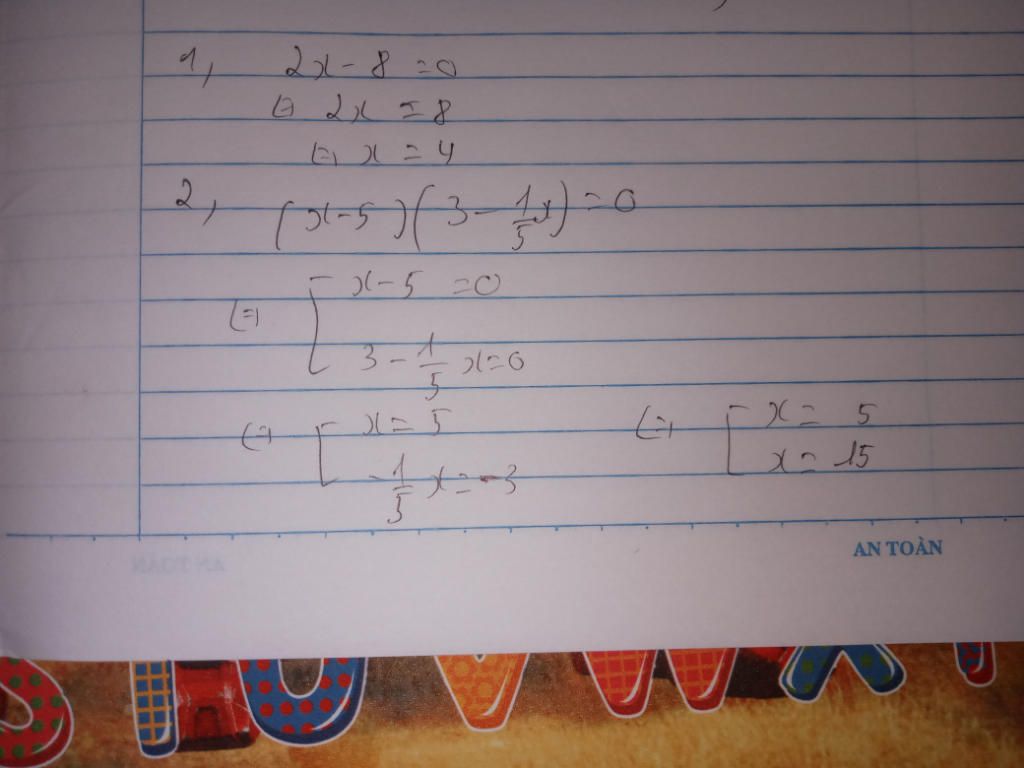 1, 2x - 8 = 0
⇔ 2x = 8
⇔ x = 4
2, (x - 5)(3 - 1/5 x) = 0
⇔ [ x - 5 = 0
3 - 1/5 x = 0
⇔ [ x = 5
- 1/5 x = -3
⇔ [ x = 5
x = 15
AN TOÀN
S I U V W X Y